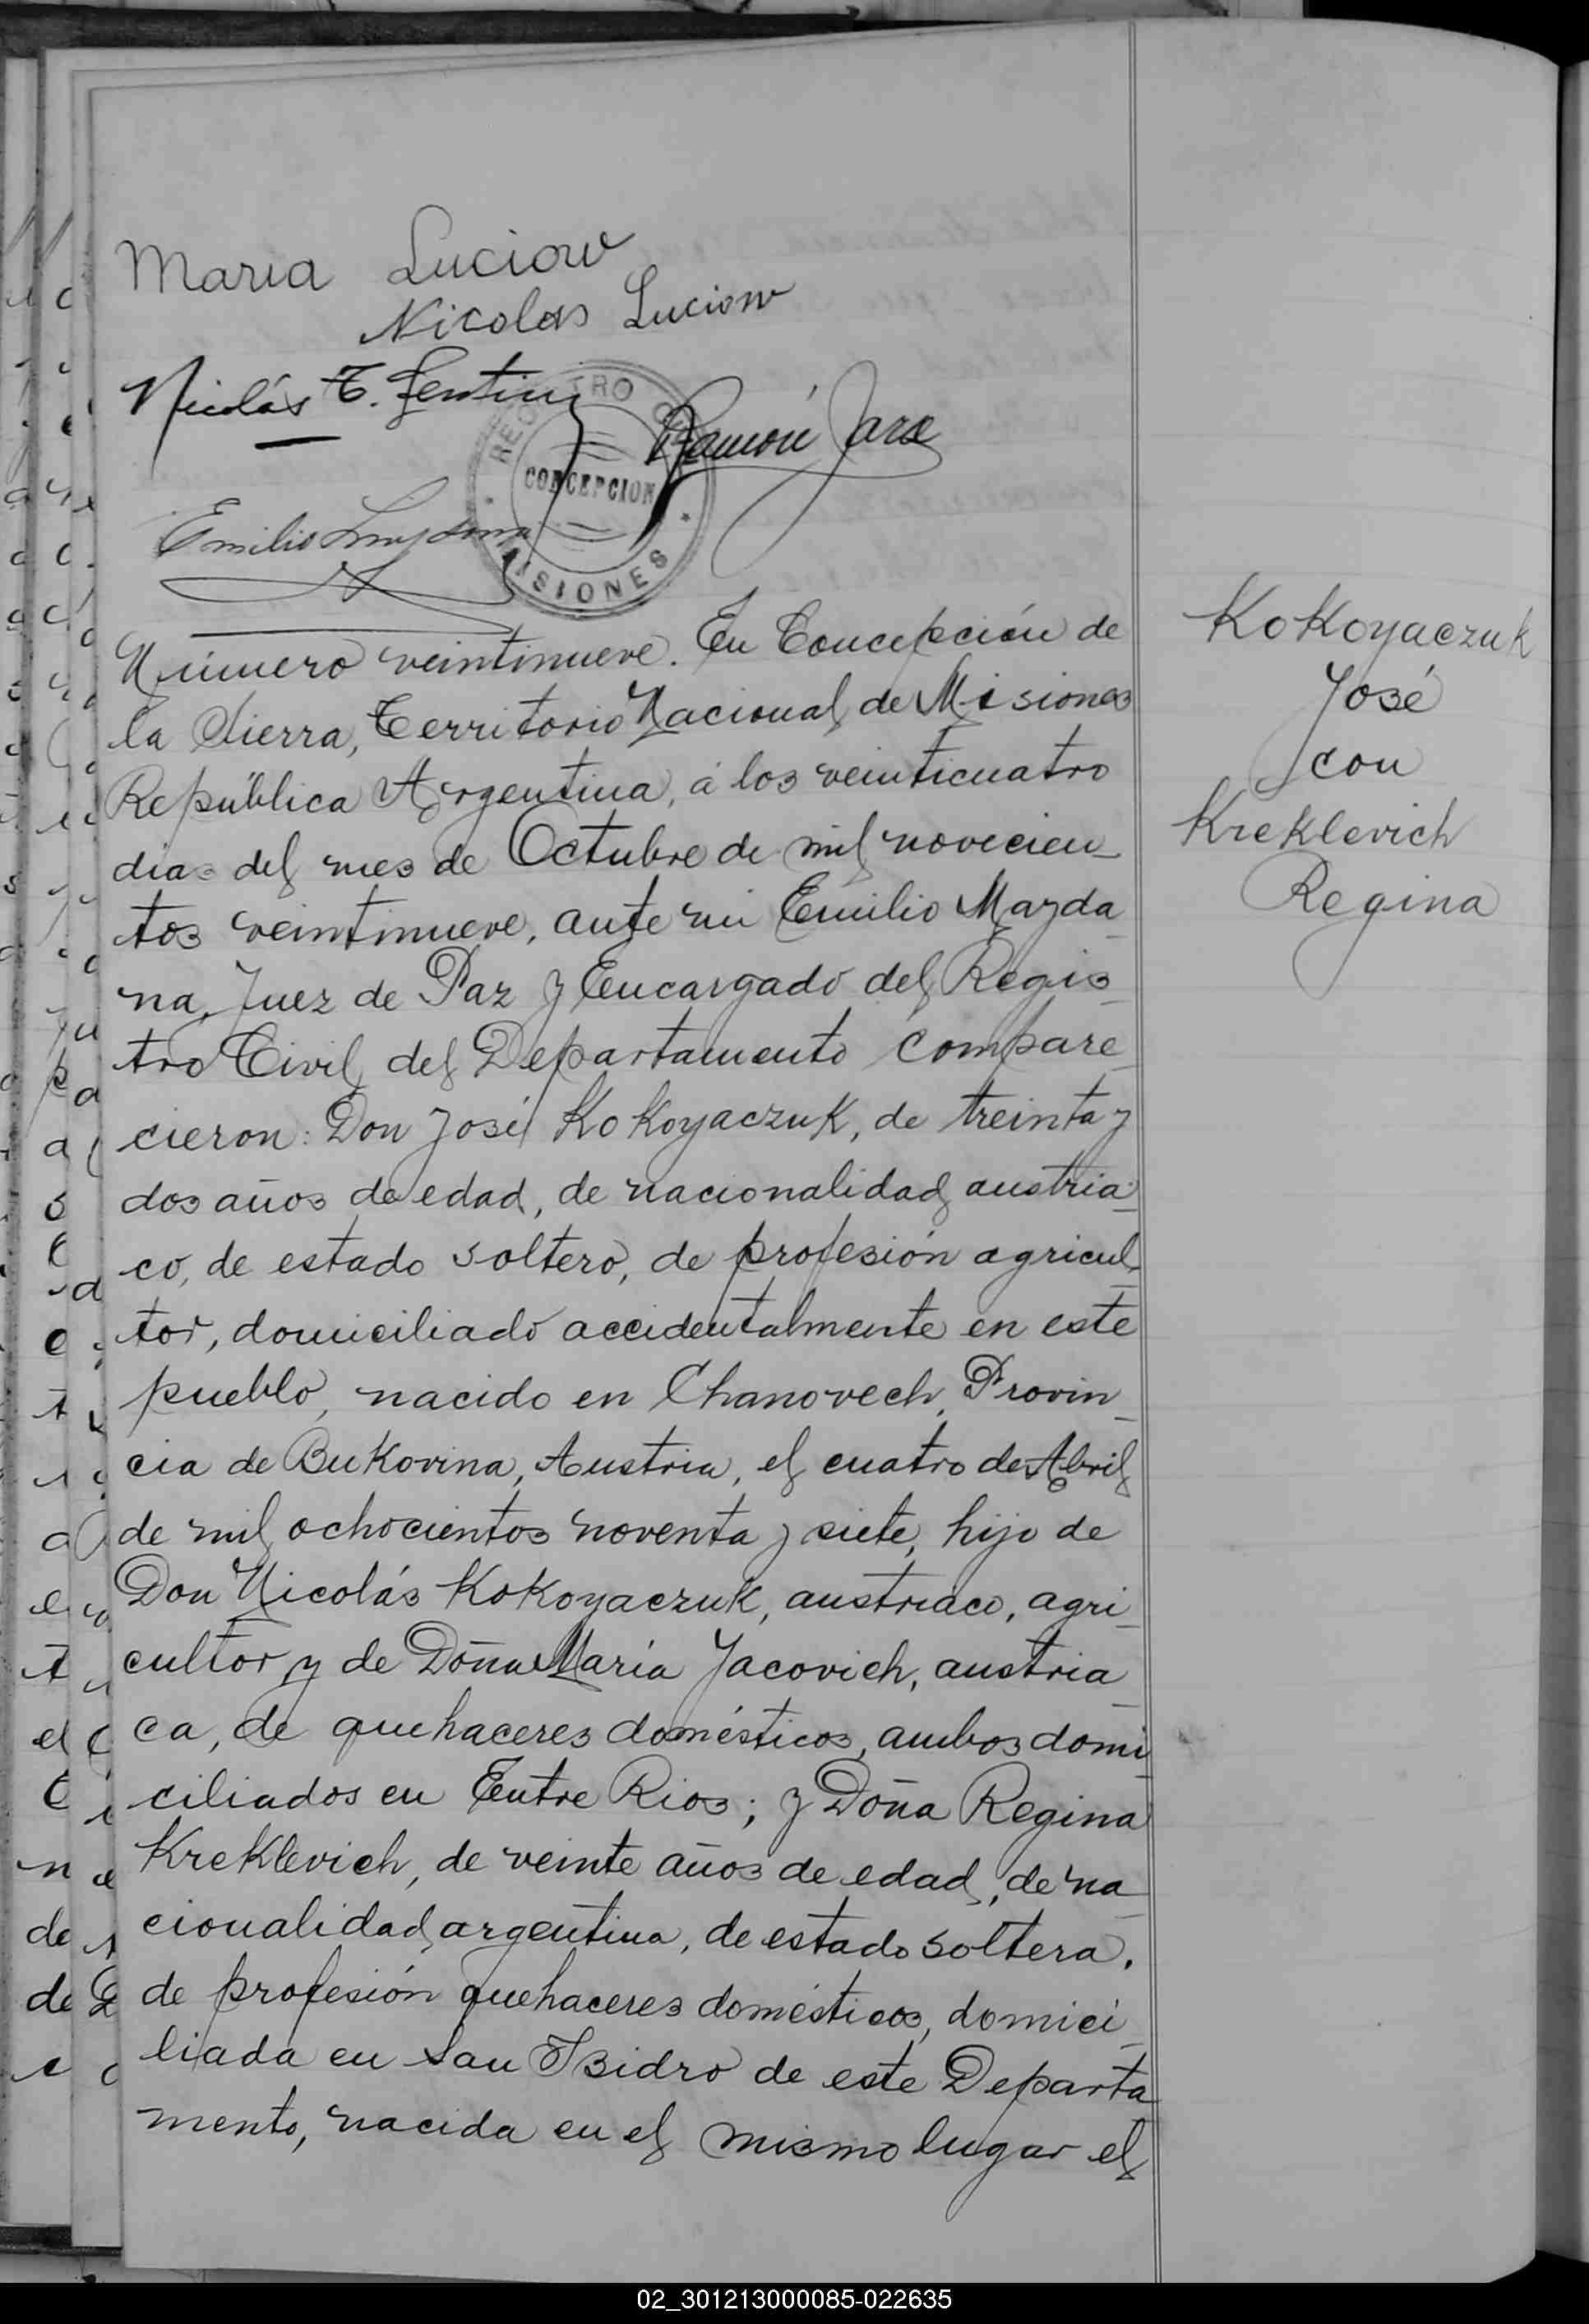 Maria Luciow
Nicolas Luciow
Nicolás T. Gentini
Ramón Jara
REGISTRO
CONCEPCION
MISIONES
Emilio
Número veintinueve. En Concepción de
la Sierra, Territorio Nacional de Misiones
República Argentina, á los veinticuatro
dias del mes de Octubre de mil novecien_
tos veintinueve, ante mi Emilio Mayda_
na, Juez de Paz y Encargado del Regis_
tro Civil del Departamento compare_
cieron: Don José Kokoyaczuk, de treinta y
dos años de edad, de nacionalidad austria_
co, de estado soltero, de profesión agricul_
tor, domiciliado accidentalmente en este
pueblo, nacido en Chanovech, Provin_
cia de Bukovina, Austria, el cuatro de Abril
de mil ochocientos noventa y siete, hijo de
Don Nicolás Kokoyaczuk, austriaco, agri_
cultor y de Doña María Jacovich, austria_
ca, de quehaceres domésticos, ambos domi_
ciliados en Entre Rios; y Doña Regina
Kreklevich, de veinte años de edad, de na_
cionalidad argentina, de estado soltera,
de profesión quehaceres domésticos, domici_
liada en San Isidro de este Departa_
mento, nacida en el mismo lugar el
Kokoyaczuk
José
con
Kreklevich
Regina
02_301213000085-022635